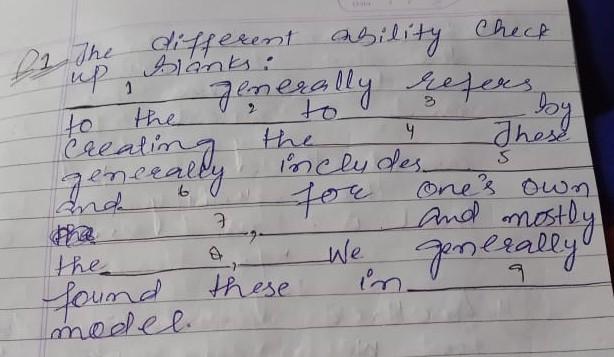 Q1 The different ability check
up blanks:
____1____ generally refers
to the ____2____ to ____3____ by
creating the ____4____ These
generally includes ____5____
and ____6____ for one's own
____7____, ________ and mostly
the ____8____, ____ We generally
found these in ____9____
model.